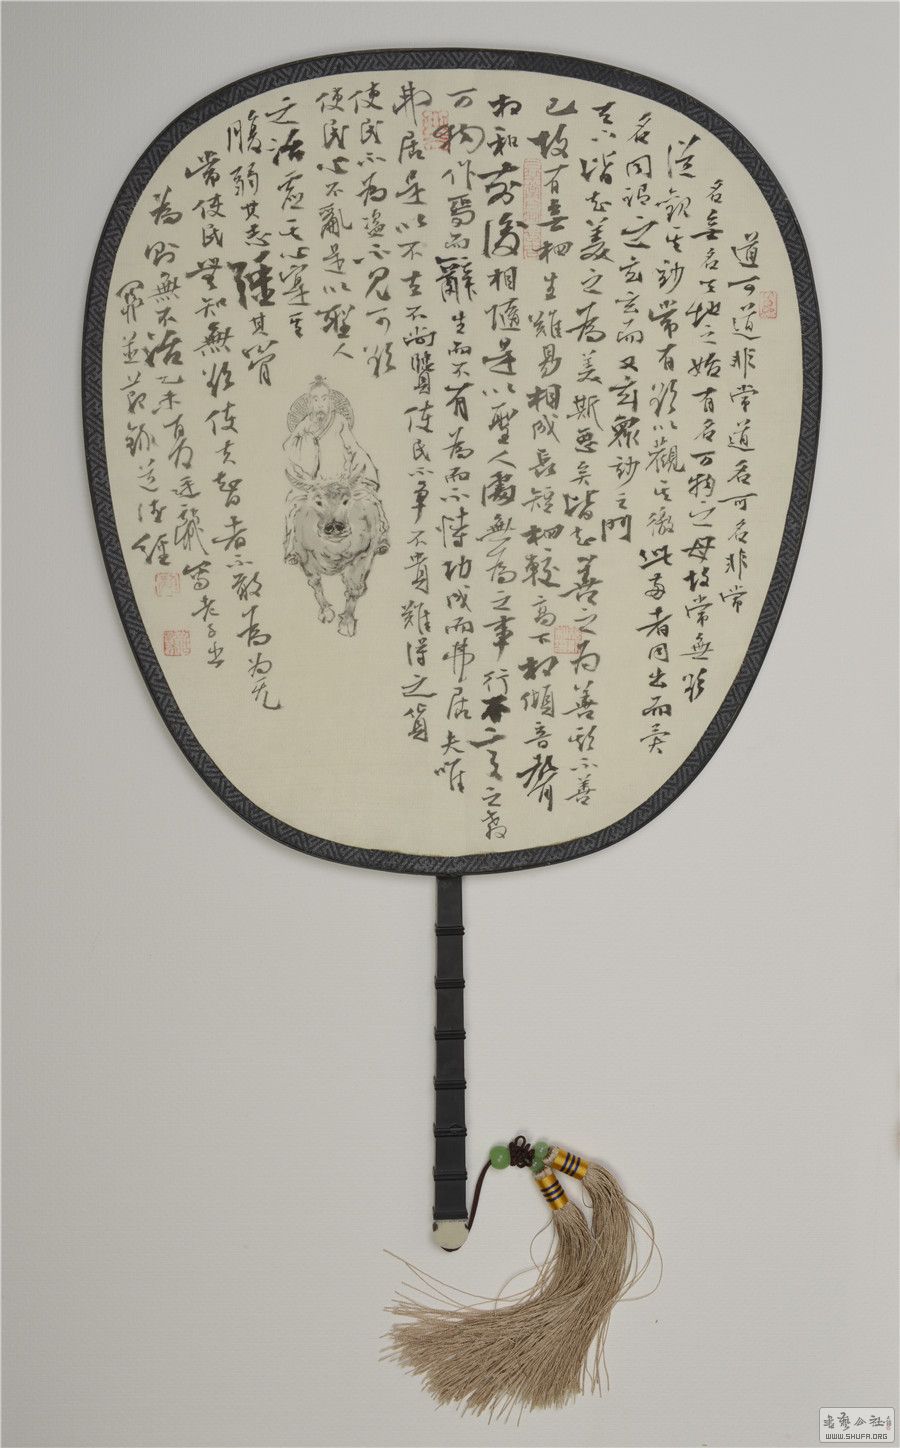 道可道非常道名可名非常
名無名天地之始有名万物之母故常無欲
以觀其妙常有欲以觀其徼此兩者同出而异
名同謂之玄玄而又玄眾妙之門
天下皆知美之為美斯惡矣皆知善之為善斯不善
已故有無相生難易相成長短相較高下相傾音聲
相和前後相隨是以聖人處無為之事行不言之教
万物作焉而辭生而不有為而不恃功成而弗居夫唯
弗居是以不去不尚賢使民不爭不貴難得之貨
使民不為盜不見可欲
使民心不亂是以聖人
之治虛其心實其
腹弱其志強其骨
常使民無知無欲使夫智者不敢為為无
為則無不治乙未夏月 寫老子出
關並節錄道德經
WWW.SHUFA.ORG